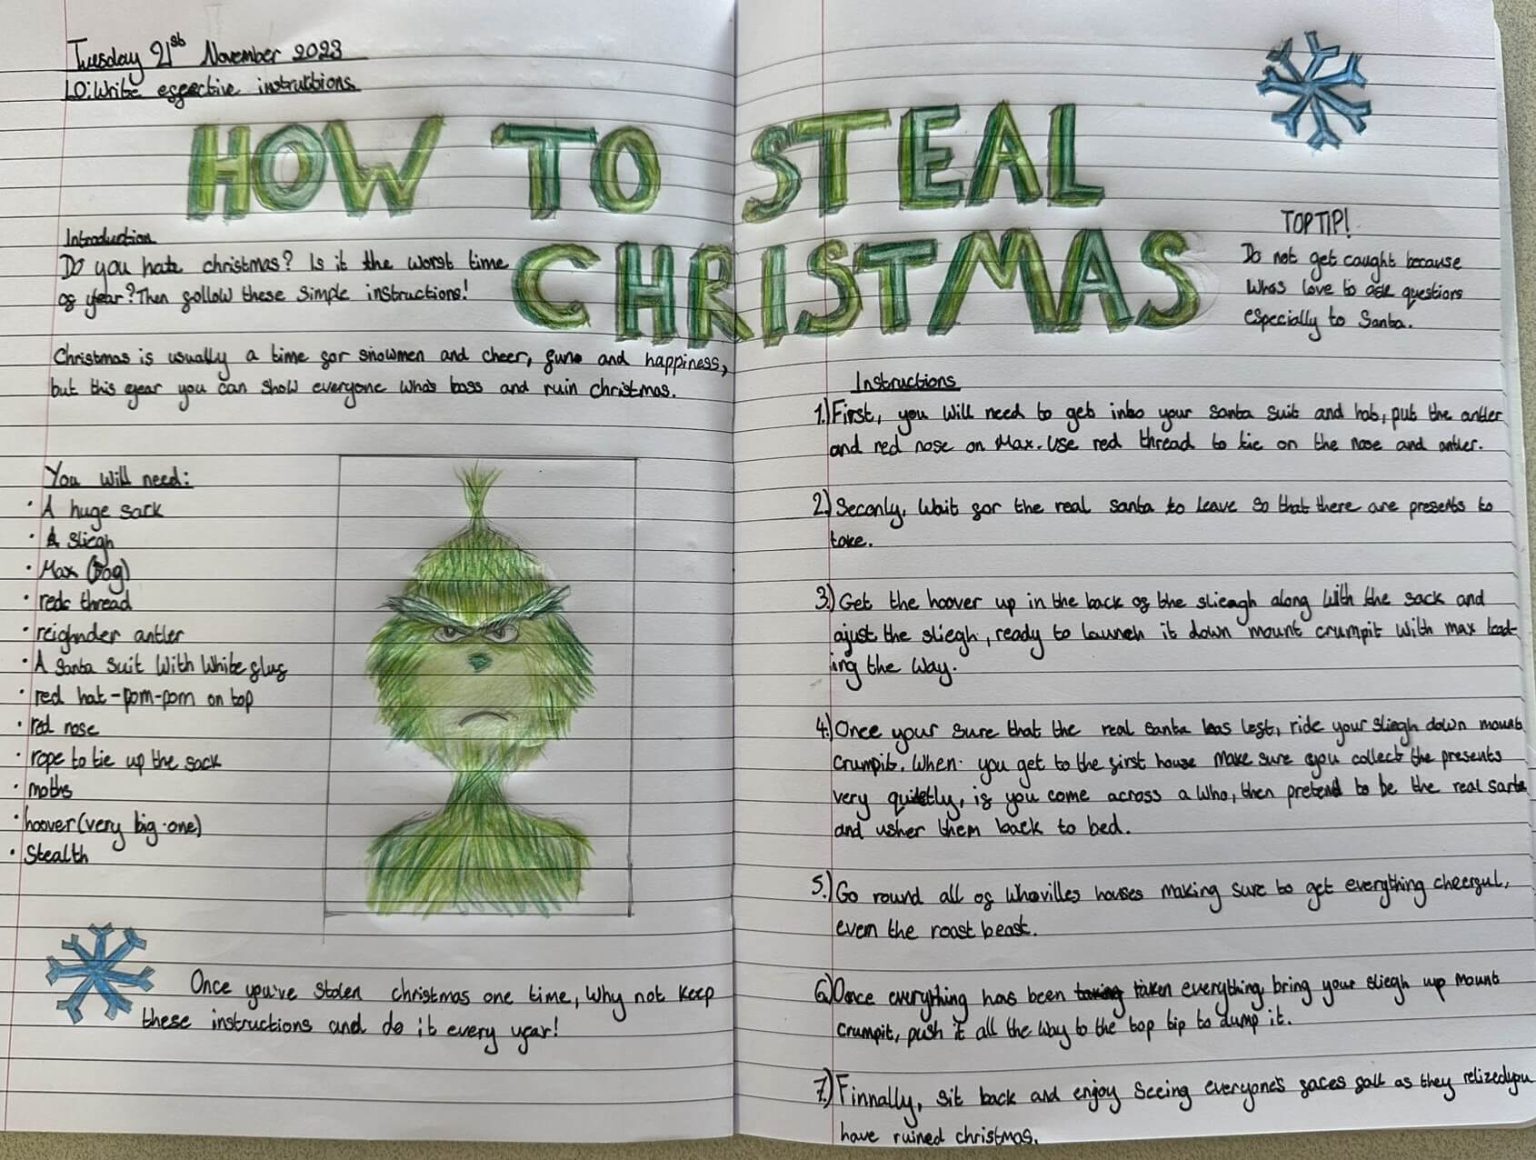 Tuesday 21st November 2023
LO: Write effective instructions
HOW TO STEAL
CHRISTMAS
Introduction
Do you hate christmas? Is it the worst time
of year? Then follow these simple instructions!
Christmas is usually a time for snowmen and cheer, fun and happiness,
but this year you can show everyone whos boss and ruin christmas.
You will need:
· A huge sack
· A sliegh
· Max (Dog)
· red thread
· reighnder antler
· A santa suit with white fluf
· red hat-pom-pom on top
· red nose
· rope to tie up the sack
· moths
· hoover (very big one)
· Stealth
Once you've stolen christmas one time, why not keep
these instructions and do it every year!
TOP TIP!
Do not get caught because
Whos love to ask questions
especially to Santa.
Instructions
1.) First, you will need to get into your santa suit and hat, put the antler
and red nose on Max. Use red thread to tie on the nose and antler.
2.) Seconly, wait for the real santa to leave so that there are presents to
take.
3.) Get the hoover up in the back of the slieagh along with the sack and
ajust the sliegh, ready to launch it down mount crumpit with max lead-
ing the way.
4.) Once your sure that the real santa has left, ride your sliegh down mount
crumpit. When you get to the first house make sure you collect the presents
very quietly, if you come across a Who, then pretend to be the real santa
and usher them back to bed.
5.) Go round all of whovilles houses making sure to get everything cheerful,
even the roast beast.
6.) Once everything has been taking taken everything, bring your sliegh up mount
crumpit, push it all the way to the top tip to dump it.
7.) Finnally, sit back and enjoy seeing everyone's faces fall as they relized you
have ruined christmas.